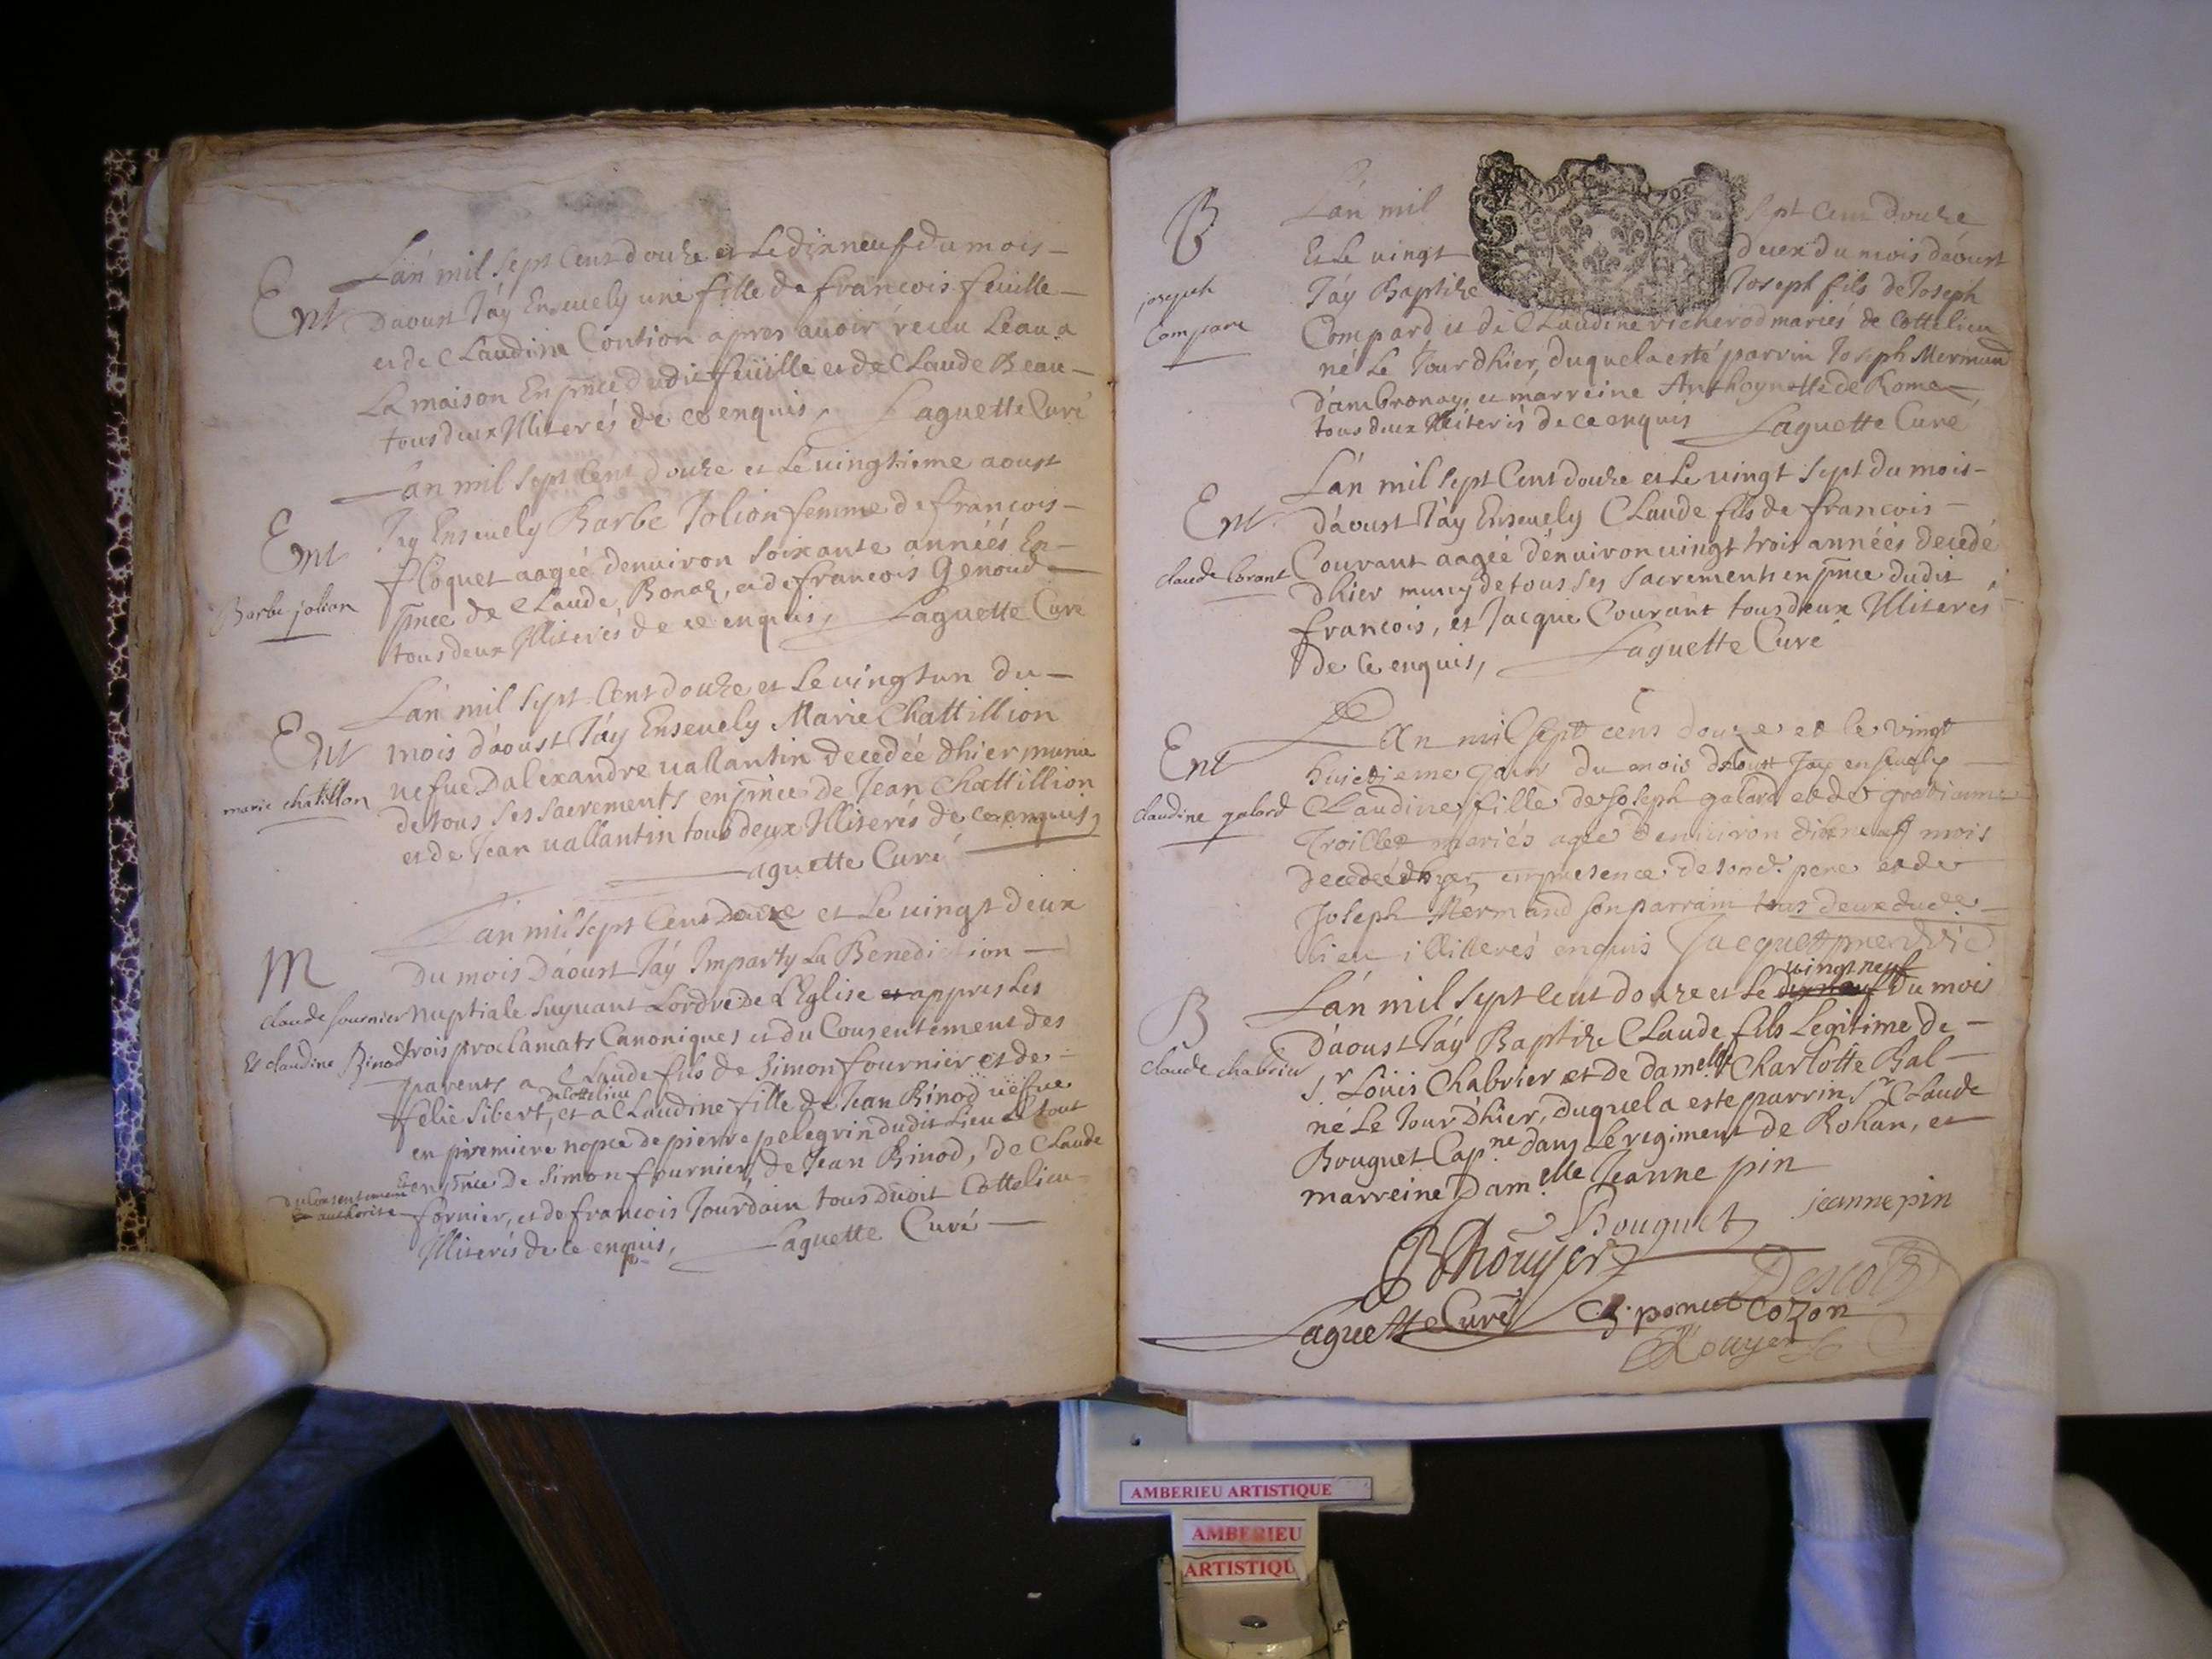 Ent
Lan mil sept Cent douze et Le dixneuf du mois
Daoust Jáy Enseuely une fille de francois feuille
et de Claudine Contion apres auoir receu Leau a
La maison En pnce dudit feüille et de Claude Beau
tous deux Illiterés de ce enquis, Laguette Curé
Ent
Barbe jolion
Lan mil Sept Cent douze et Le uingtieme aoust
Jay Enseuely Barbe Jolion femme de francois
floquet aagée denuiron Soixante années En
pnce de Claude Bonaz, et de francois Genoud
tous deux Illiterés de ce enquis, Laguette Curé
Ent
marie chatillon
Lán mil Sept Cent douze et Le uingtun du
mois dáoust Jáy Enseuely Marie Chattillion
uefue Dalexandre uallantin decedée dhier munie
de tous ses sacrements en pnce de Jean Chattillion
et de Jean uallantin tous deux Illiterés de ce enquis,
Laguette Curé
M
claude fournier
Et claudine Binod
Lan mil Sept Cent Douze et Le uingt deux
Du mois Dáoust Jáy Imparty La Benediction
nuptiale Suyuant Lordre de L'Eglise et appres Les
trois proclamats Canoniques et du Consentement des
parents a Claude fils de Simon fournier et de
felie Sibert, de Cottelieu et a Claudine fille de Jean Binod uëfue
en première nopce de pierre pelegrin dudit Lieu Le tout
du Consentement et authorité
en pnce De Simon fournier, de Jean Binod, de Claude
fornier, et de francois Jourdain tous dudit Cottelieu
Illiterés de ce enquis, Laguette Curé
B
joseph
Compare
Lán mil sept Cent douze
Et Le uingt deux du mois dáoust
Jáy Baptize Joseph fils de Joseph
Compard et de Claudine richerod mariés de Cottelieu
né Le Jour dhier, duquel a esté parrin Joseph Mermand
dámbronay, et márreine Anthoynette de Rome
tous deux Illiterés de ce enquis Laguette Curé
Ent
claude Corant
Lán mil Sept Cent douze et Le uingt Sept du mois
dáoust Jáy Enseuely Claude fils de francois
Couvant aagée dénuiron uingt trois années decedé
dhier muny de tous Ses Sacrements en pnce dudit
francois, et Jacque Courant tous deux Illiterés
de Ce enquis, Laguette Curé
Ent
claudine galard
Lan mil sept cens douze et le vingt
huictieme jour du mois daoust Jay enseuely
Claudine fille de Joseph galard et de gratianne
Troillet mariés agée denuiron dixneuf mois
decedée dhyer en presence de sond. pere et de
Joseph Mermand son parrain tous deux dud.
lieu illiterés enquis Jacquemet vic
B
claude chabrier
Lán mil Sept Cent douze et Le dixneuf uingt neuf du mois
dáoust Jáy Baptize Claude fils Legitime de
Sr Loüis Chabrier et de damelle Charlotte Bal
né Le Jour dhier, duquel a este parrin Sr Claude
Bouguet Capne dans Le regiment de Rohan, et
marreine Damelle Jeanne pin
Bouguet jeanne pin
Bhouyer Descotz
Laguette Curé ponut Cozon
Rouyer
AMBERIEU ARTISTIQUE
AMBERIEU
ARTISTIQU